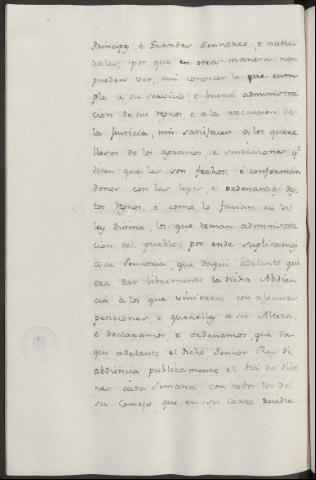 Principes é Grandes Sennores, é natu-
rales, por que en otra manera non
pueden ver, nin conocer lo que cum-
ple a su servicio é buena administra
cion de sus regnos, é a la execucion de
la Justicia, nin satisfacer a los quere
llosos de los agravios é sinrazones qe
dicen que les son fechos, é conforman
donos con las leyes, é ordenanzas des-
tos regnos, é como lo facian en la
ley divina, los que tenian administra
cion del pueblo, por ende suplicamos
a su Sennoria, que daqui adelante qui
era dar libremente la dicha Abdien
cia a los que vinieren con algunas
peticiones é querellas a su Alteza,
é declaramos é ordenamos que da-
qui adelante el dicho Sennor Rey dé
abdiencia publicamente el dia de Vier
nes cada semana con todos los de
su Consejo que en su Corte residie